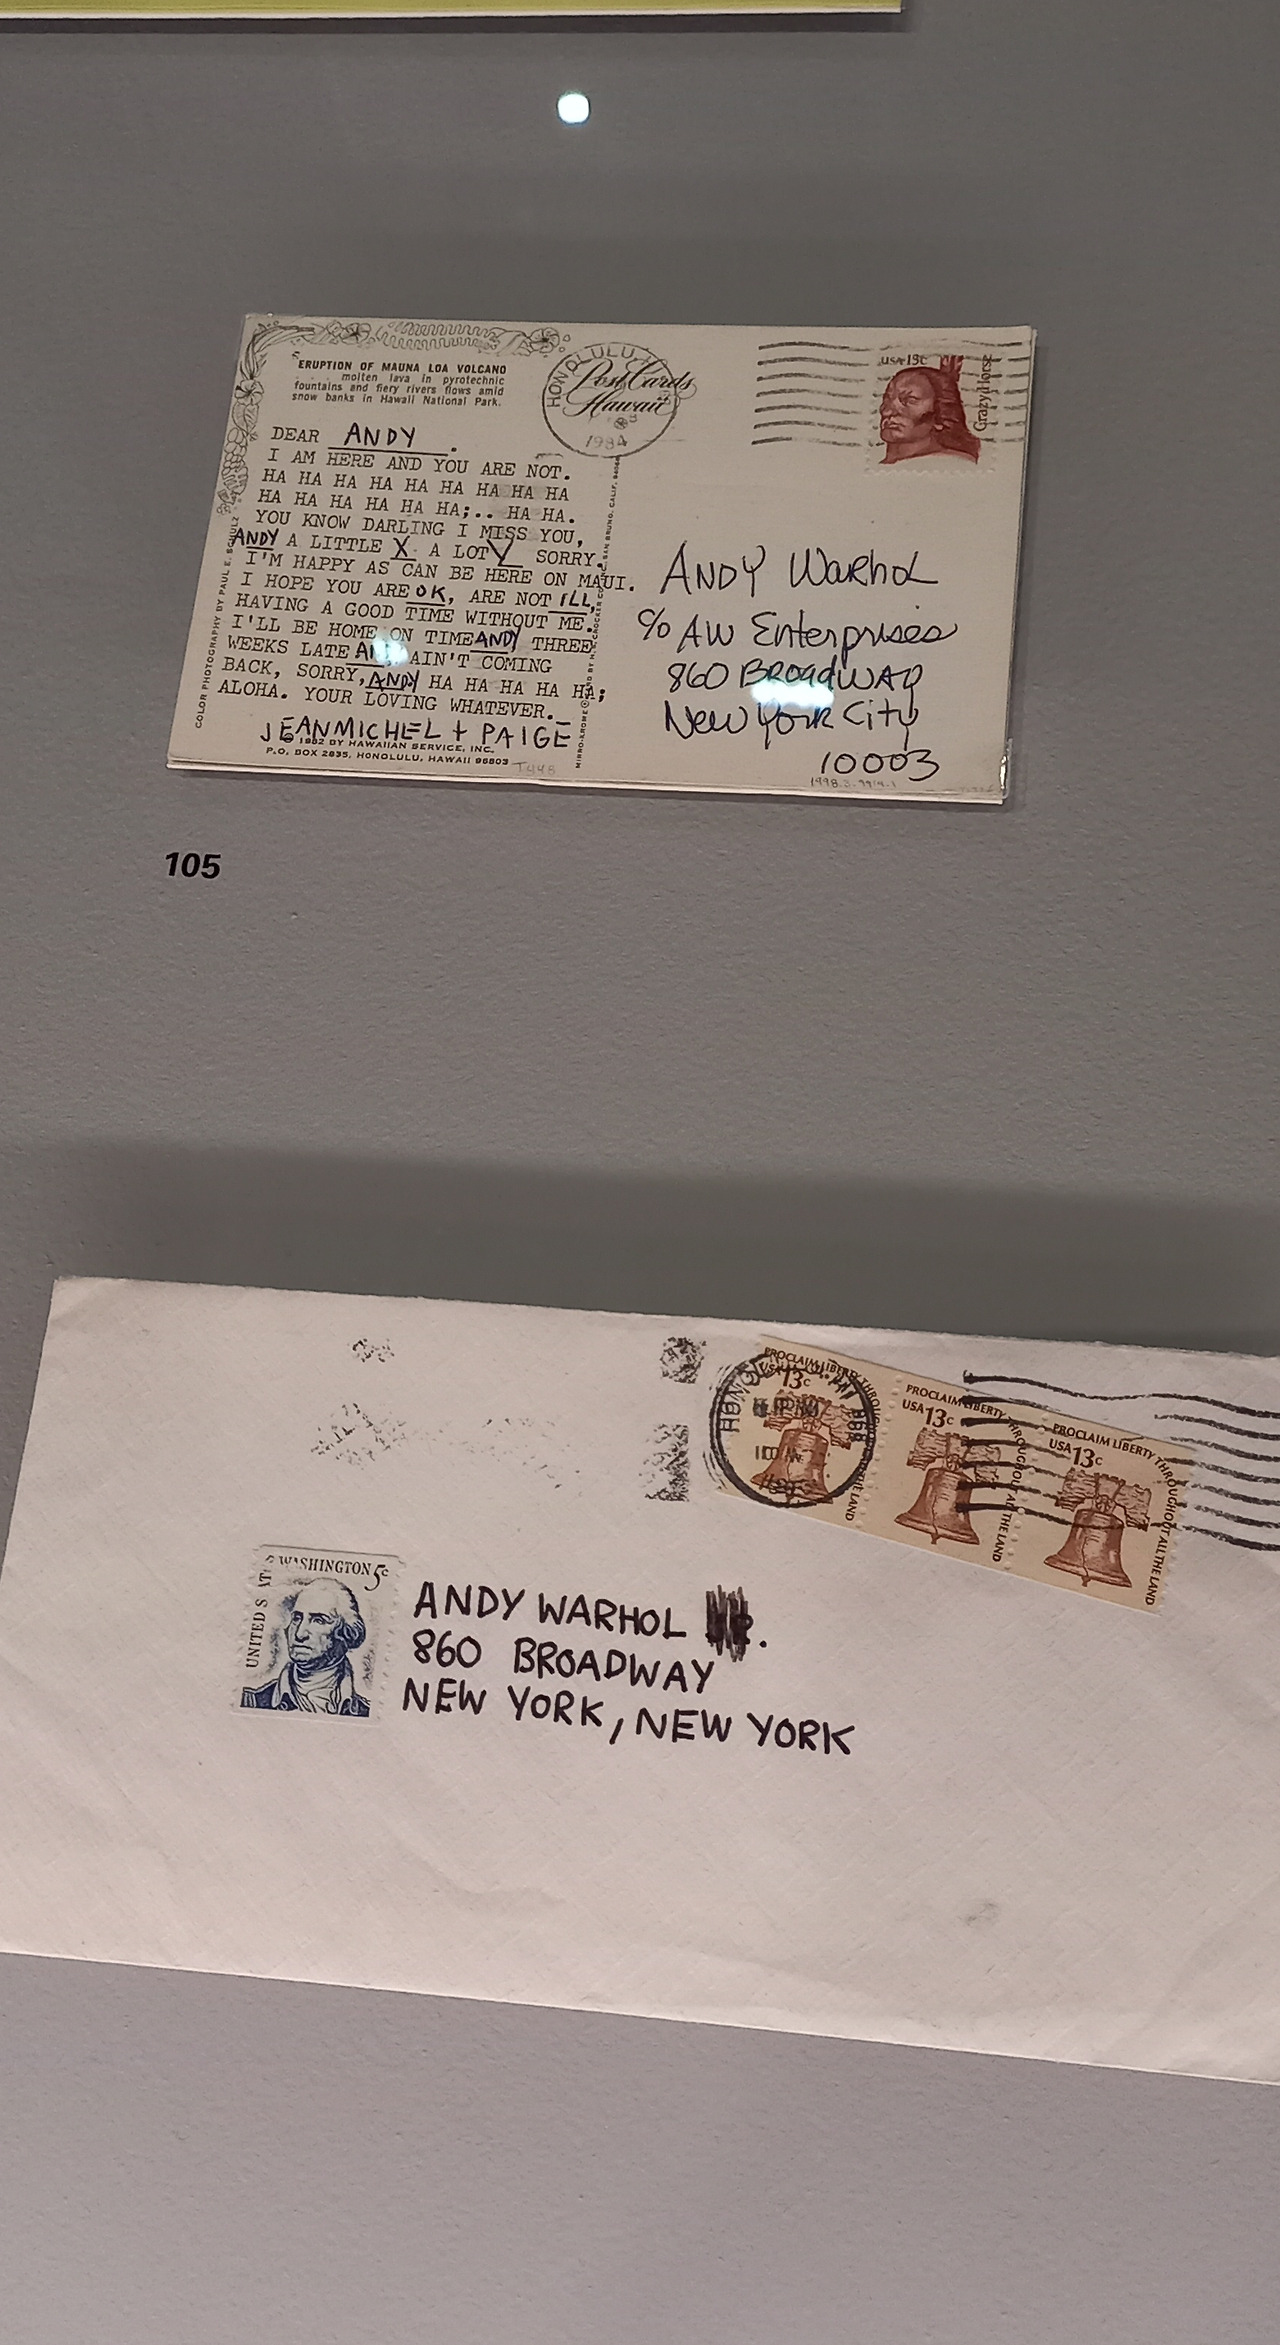 ERUPTION OF MAUNA LOA VOLCANO
molten lava in pyrotechnic
fountains and fiery rivers flows amid
snow banks in Hawaii National Park.
HONOLULU
Post Cards
Hawaii
1984
USA 13c
Crazy Horse
DEAR ANDY.
I AM HERE AND YOU ARE NOT.
HA HA HA HA HA HA HA HA HA
HA HA HA HA HA HA;.. HA HA.
YOU KNOW DARLING I MISS YOU,
ANDY A LITTLE X A LOT V SORRY.
I'M HAPPY AS CAN BE HERE ON MAUI.
I HOPE YOU ARE OK, ARE NOT ILL,
HAVING A GOOD TIME WITHOUT ME.
I'LL BE HOME ON TIME ANDY THREE
WEEKS LATE AIN'T COMING
BACK, SORRY, ANDY HA HA HA HA HA;
ALOHA. YOUR LOVING WHATEVER._
JEANMICHEL + PAIGE
1982 BY HAWAIIAN SERVICE, INC.
P.O. BOX 2835, HONOLULU, HAWAII 96803
T448
COLOR PHOTOGRAPHY BY PAUL E. SCHULZ
SAN BRUNO, CALIF.
ANDY WarhoL
c/o AW Enterprises
860 BROadWAY
New York City
10003
105
PROCLAIM LIBERTY THROUGHOUT ALL THE LAND
USA 13c
PROCLAIM LIBERTY THROUGHOUT ALL THE LAND
USA 13c
PROCLAIM LIBERTY THROUGHOUT ALL THE LAND
USA 13c
WASHINGTON 5c
ANDY WARHOL
860 BROADWAY
NEW YORK, NEW YORK